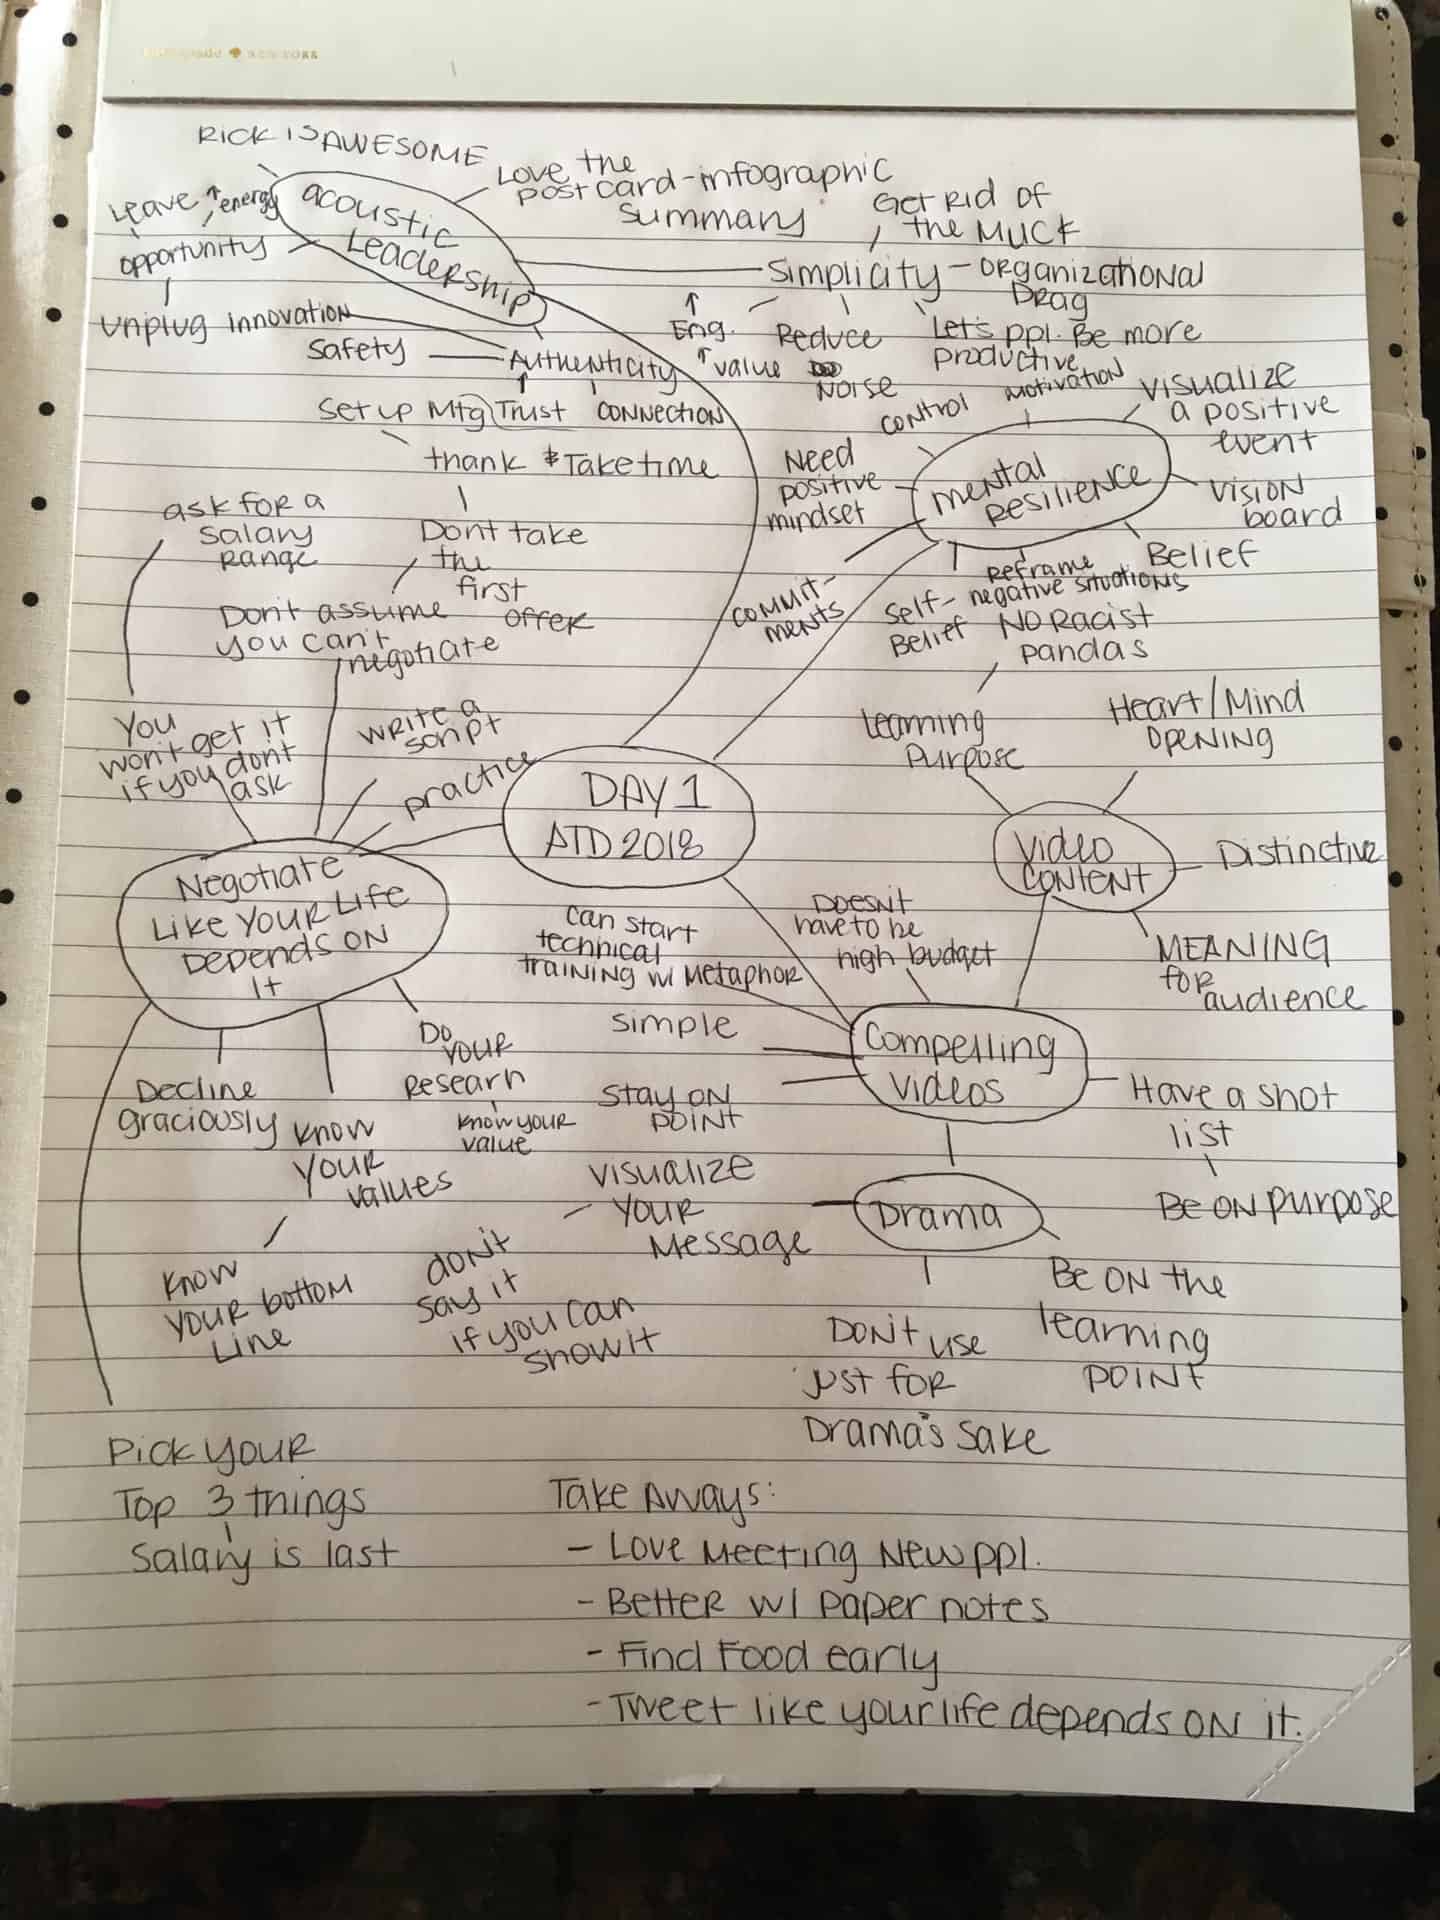 NEW YORK
RICK IS AWESOME
Leave ↑ energy
opportunity
unplug innovation
Safety
acoustic
Leadership
Love the
post card - infographic
summary
Get Rid of
the MUCK
Simplicity - Organizational
Drag
↑
Eng.
↑ value
Reduce
Noise
Let's ppl. Be more
productive
Authenticity
Set up Mtg Trust
CONNECTION
thank & Take time
Don't take
the
first
offer
Don't assume
you can't
negotiate
ask for a
salary
range
You
won't get it
if you don't
ask
write a
script
practice
control
motivation
Visualize
a positive
event
Need
positive
mindset
Mental
Resilience
Vision
board
Belief
Reframe
negative situations
Self-
Belief
commit-
ments
No Racist
pandas
Learning
Purpose
Heart/Mind
Opening
Video
Content
Distinctive
MEANING
for
audience
DAY 1
ATD 2018
Negotiate
Like Your Life
Depends on
It
Can start
technical
training w/ Metaphor
Doesn't
have to be
high budget
Simple
Stay on
point
Compelling
Videos
Have a shot
list
Be on purpose
Decline
graciously
know
your
values
Do
your
Researn
know your
value
know
your bottom
Line
Visualize
your
Message
don't
say it
if you can
show it
Drama
Be on the
learning
point
Don't use
just for
Drama's Sake
Pick your
Top 3 things
Salary is last
Take Aways:
- Love Meeting New ppl.
- Better w/ paper notes
- Find Food early
- Tweet like your life depends on it.